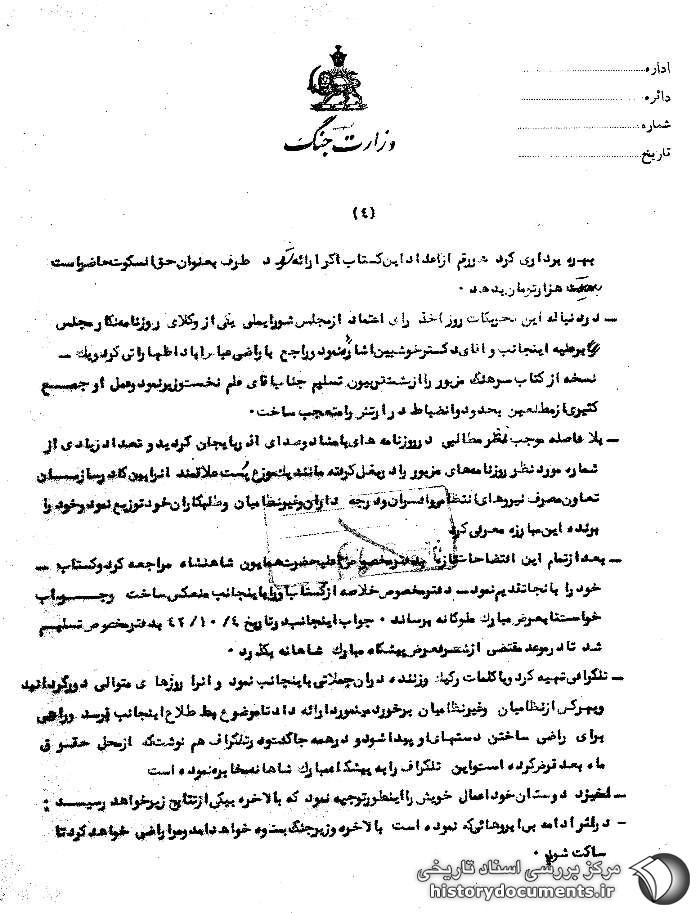 وزارت جنگ
اداره
دائره
شماره
تاریخ
(٤)
بهره برداری کرد هر رقم از اعداد این کتاب اگر ارائه شود طرف بعنوان حق السکوت حاضر است
هزار تومان بدهد .
ـ در دنباله این تحریکات روز اخذ رای اعتماد از مجلس شورایملی یکی از وکلای روزنامه نگار مجلس
را بر علیه اینجانب و اقای دکتر خوشبین اشاره نمود و راجع با راضی عباس اباد اظهاراتی کرد و یک ـ
نسخه از کتاب سرهنگ مزبور را از پشت تریبون تسلیم جناب اقای علم نخست وزیر نمود و عمل او جمع
کثیری از مطلعین بحدود انضباط در ارتش را متعجب ساخت .
ـ بلا فاصله موجب نظر مطالبی در روزنامه های بامشاد و صدای اذربایجان گردید و تعداد زیادی از
شماره مورد نظر روزنامه های مزبور را در بغل گرفته مانند یک موزع پست علاقمند انرا بین کادر سازمان
تعاون مصرف نیروهای انتظامی و افسران و درجه داران و غیر نظامیان و طلبکاران خود توزیع نمود و خود را
برنده این مبارزه معرفی کرد
ـ بعد از تمام این افتضاحات تازه بدفتر مخصوص اعلیحضرت همایون شاهنشاه مراجعه کرد و کتاب ـ
خود را بانجا تقدیم نمود ـ دفتر مخصوص خلاصه از کتاب او را باینجانب منعکس ساخت و جواب
خواست تا بعرض مبارک ملوکانه برساند . جواب اینجانب در تاریخ ٤/١٠/٤٢ بدفتر مخصوص تسلیم
شد تا در موعد مقتضی از شرفعرض پیشگاه مبارک شاهانه بگذرد .
ـ تلگرافی تهیه کرد و با کلمات رکیک و زننده در ان حملاتی باینجانب نمود و انرا روزهای متوالی دور گردانید
و بهر کس از نظامیان و غیر نظامیان برخورد مینمود ارائه داد تا موضوع باطلاع اینجانب برسد و راهی
برای راضی ساختن دستهای او پیدا شود و در همه جا گفت و در تلگراف هم نوشت که از محل حقوق
ماه بعد قرض کرده است و این تلگراف را به پیشگاه مبارک شاهانه مخابره نموده است
ـ دوستان خود اعمال خویش را اینطور توجیه نمود که بالاخره بیکی از نتایج زیر خواهد رسید :
ـ در اثر ادامه بی ابروهائی که نموده است بالاخره وزیر جنگ بستوه خواهد امد و مرا راضی خواهد کرد تا
ساکت شوم .
مرکز بررسی اسناد تاریخی
historydocuments.ir